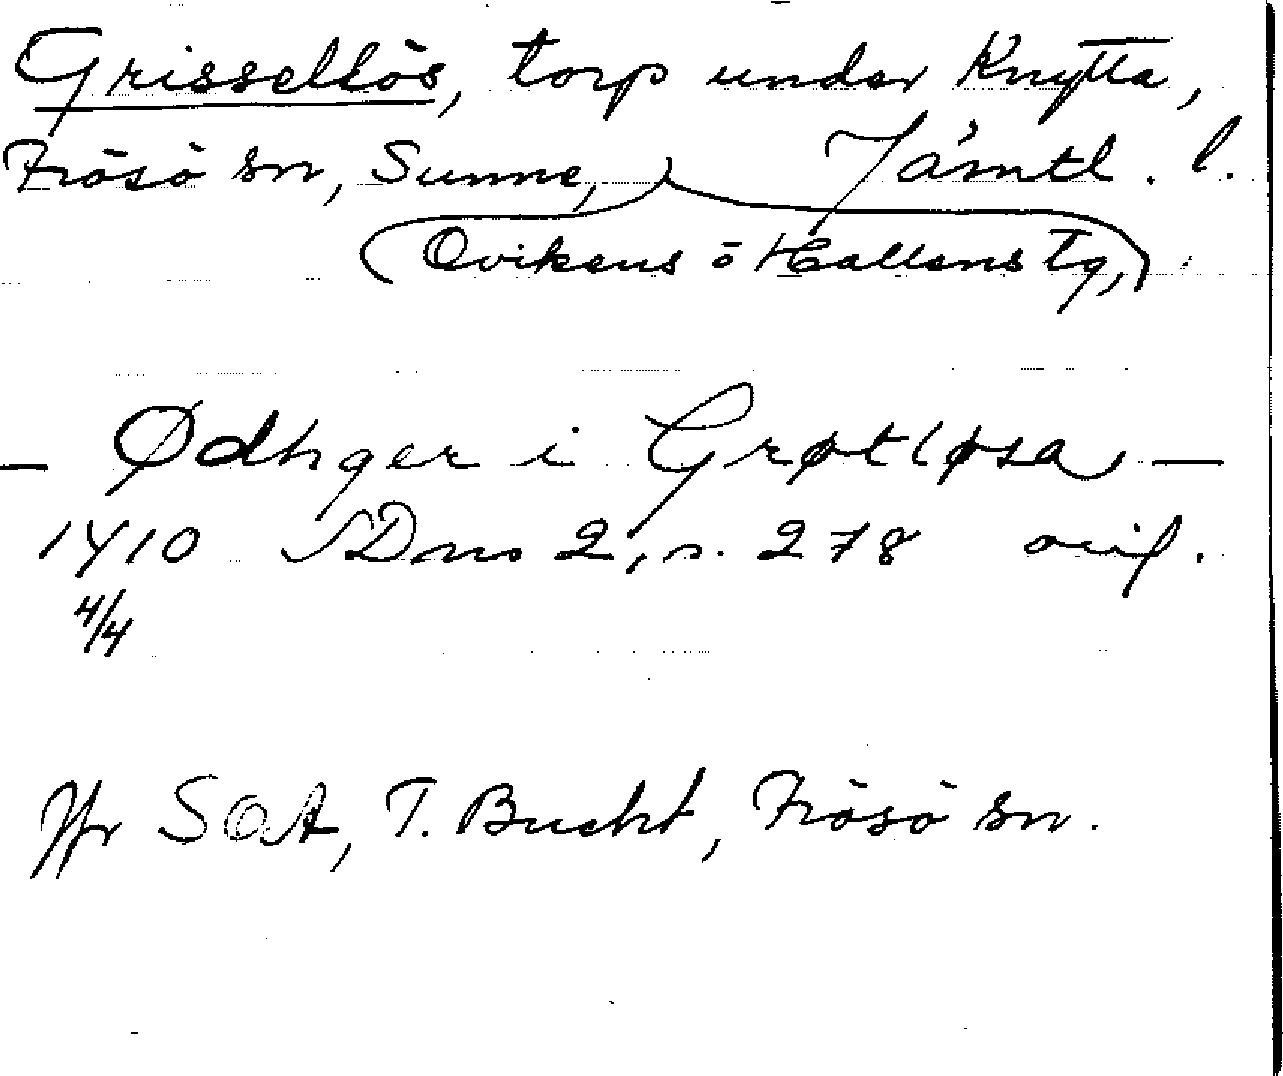 Grisselös, torp under Knytta,
Frösö sn, Sunne, Jämtl. l.
Ovikens o Hallens tg,
– Ødhger i Grøtløsa –
1410 SDns 2, s. 278 orig.
4/4
Jfr SOA, T. Bucht, Frösö sn.